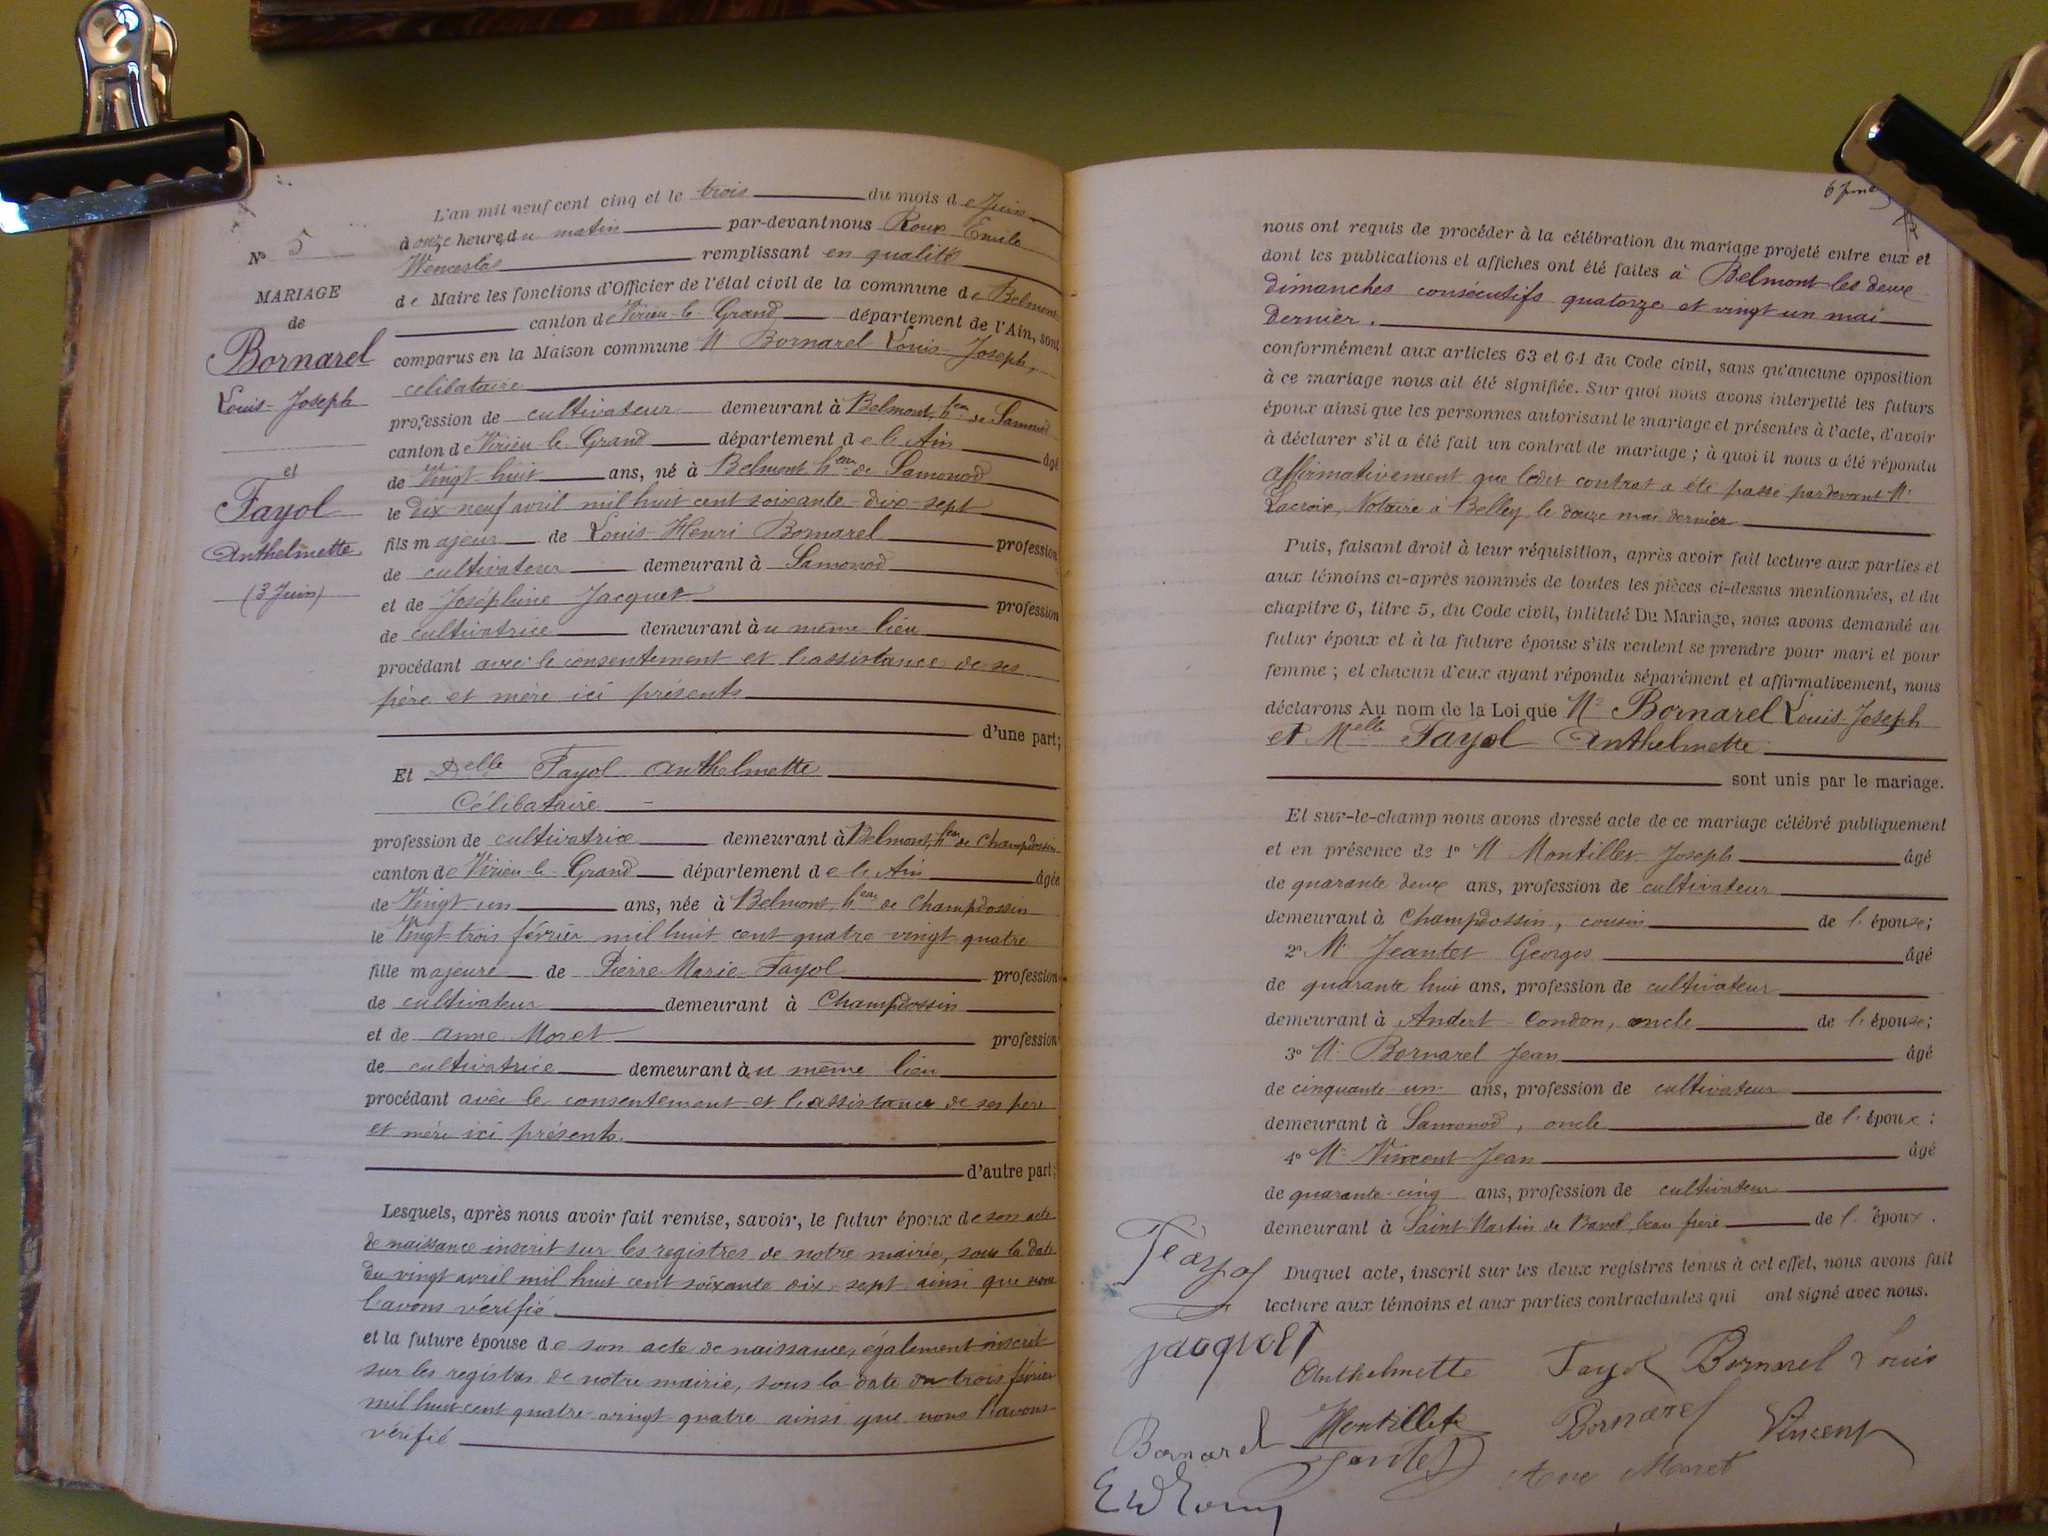 L'an mil neuf cent cinq et le trois du mois de Juin
à onze heures du matin par-devant nous Roux Emile
Wenceslas remplissant en qualité
de Maire les fonctions d'Officier de l'état civil de la commune de Belmont
canton de Virieu-le-Grand département de l'Ain, sont
comparus en la Maison commune Mr Bornarel Louis-Joseph,
célibataire
profession de cultivateur demeurant à Belmont, heau de Samonod
canton de Virieu-le-Grand département de l'Ain âgé
de Vingt-huit ans, né à Belmont heau de Samonod
le dix-neuf avril mil huit cent soixante-dix-sept
fils majeur de Louis-Henri Bornarel profession
de cultivateur demeurant à Samonod
et de Joséphine Jacquet profession
de cultivatrice demeurant au même lieu
procédant avec le consentement et l'assistance de ses
père et mère ici présents
d'une part;
Et Delle Fayol Anthelmette
Célibataire
profession de cultivatrice demeurant à Belmont, heau de Champdossin
canton de Virieu-le-Grand département de l'Ain âgée
de Vingt un ans, née à Belmont, heau de Champdossin
le Vingt-trois février mil huit cent quatre-vingt quatre
fille majeure de Pierre Marie Fayol profession
de cultivateur demeurant à Champdossin
et de Anne Moret profession
de cultivatrice demeurant au même lieu
procédant avec le consentement et l'assistance de ses père
et mère ici présents.
d'autre part;
Lesquels, après nous avoir fait remise, savoir, le futur époux de son acte
de naissance inscrit sur les registres de notre mairie, sous la date
du vingt avril mil huit cent soixante dix-sept ainsi que nous
l'avons vérifié
et la future épouse de son acte de naissance, également inscrit
sur les registres de notre mairie, sous la date du trois février
mil huit cent quatre-vingt-quatre ainsi que nous l'avons
vérifié
No 5
MARIAGE
de
Bornarel
Louis-Joseph
et
Fayol
Anthelmette
(3 Juin)
nous ont requis de procéder à la célébration du mariage projeté entre eux et
dont les publications et affiches ont été faites à Belmont les deux
dimanches consécutifs quatorze et vingt un mai
dernier.
conformément aux articles 63 et 64 du Code civil, sans qu'aucune opposition
à ce mariage nous ait été signifiée. Sur quoi nous avons interpellé les futurs
époux ainsi que les personnes autorisant le mariage et présentes à l'acte, d'avoir
à déclarer s'il a été fait un contrat de mariage; à quoi il nous a été répondu
affirmativement que ledit contrat a été passé pardevant Me
Lacroix, Notaire à Belley le douze mai dernier
Puis, faisant droit à leur réquisition, après avoir fait lecture aux parties et
aux témoins ci-après nommés de toutes les pièces ci-dessus mentionnées, et du
chapitre 6, titre 5, du Code civil, intitulé Du Mariage, nous avons demandé au
futur époux et à la future épouse s'ils veulent se prendre pour mari et pour
femme; et chacun d'eux ayant répondu séparément et affirmativement, nous
déclarons Au nom de la Loi que Mr Bornarel Louis-Joseph
et Melle Fayol Anthelmette
sont unis par le mariage.
Et sur-le-champ nous avons dressé acte de ce mariage célébré publiquement
et en présence de 1o Mr Montillet Joseph âgé
de quarante deux ans, profession de cultivateur
demeurant à Champdossin, cousin de l'épouse;
2o Mr Jeantet Georges âgé
de quarante huit ans, profession de cultivateur
demeurant à Andert-Condon, oncle de l'épouse;
3o Mr Bornarel Jean âgé
de cinquante un ans, profession de cultivateur
demeurant à Samonod, oncle de l'époux:
4o Mr Vincent Jean âgé
de quarante-cinq ans, profession de cultivateur
demeurant à Saint Martin de Bavel, beau frère de l'époux.
Duquel acte, inscrit sur les deux registres tenus à cet effet, nous avons fait
lecture aux témoins et aux parties contractantes qui ont signé avec nous.
jacquet
Anthelmette Fayol Bornarel Louis
Bornarel Montillet Bornarel Vincent
Jantet Moret